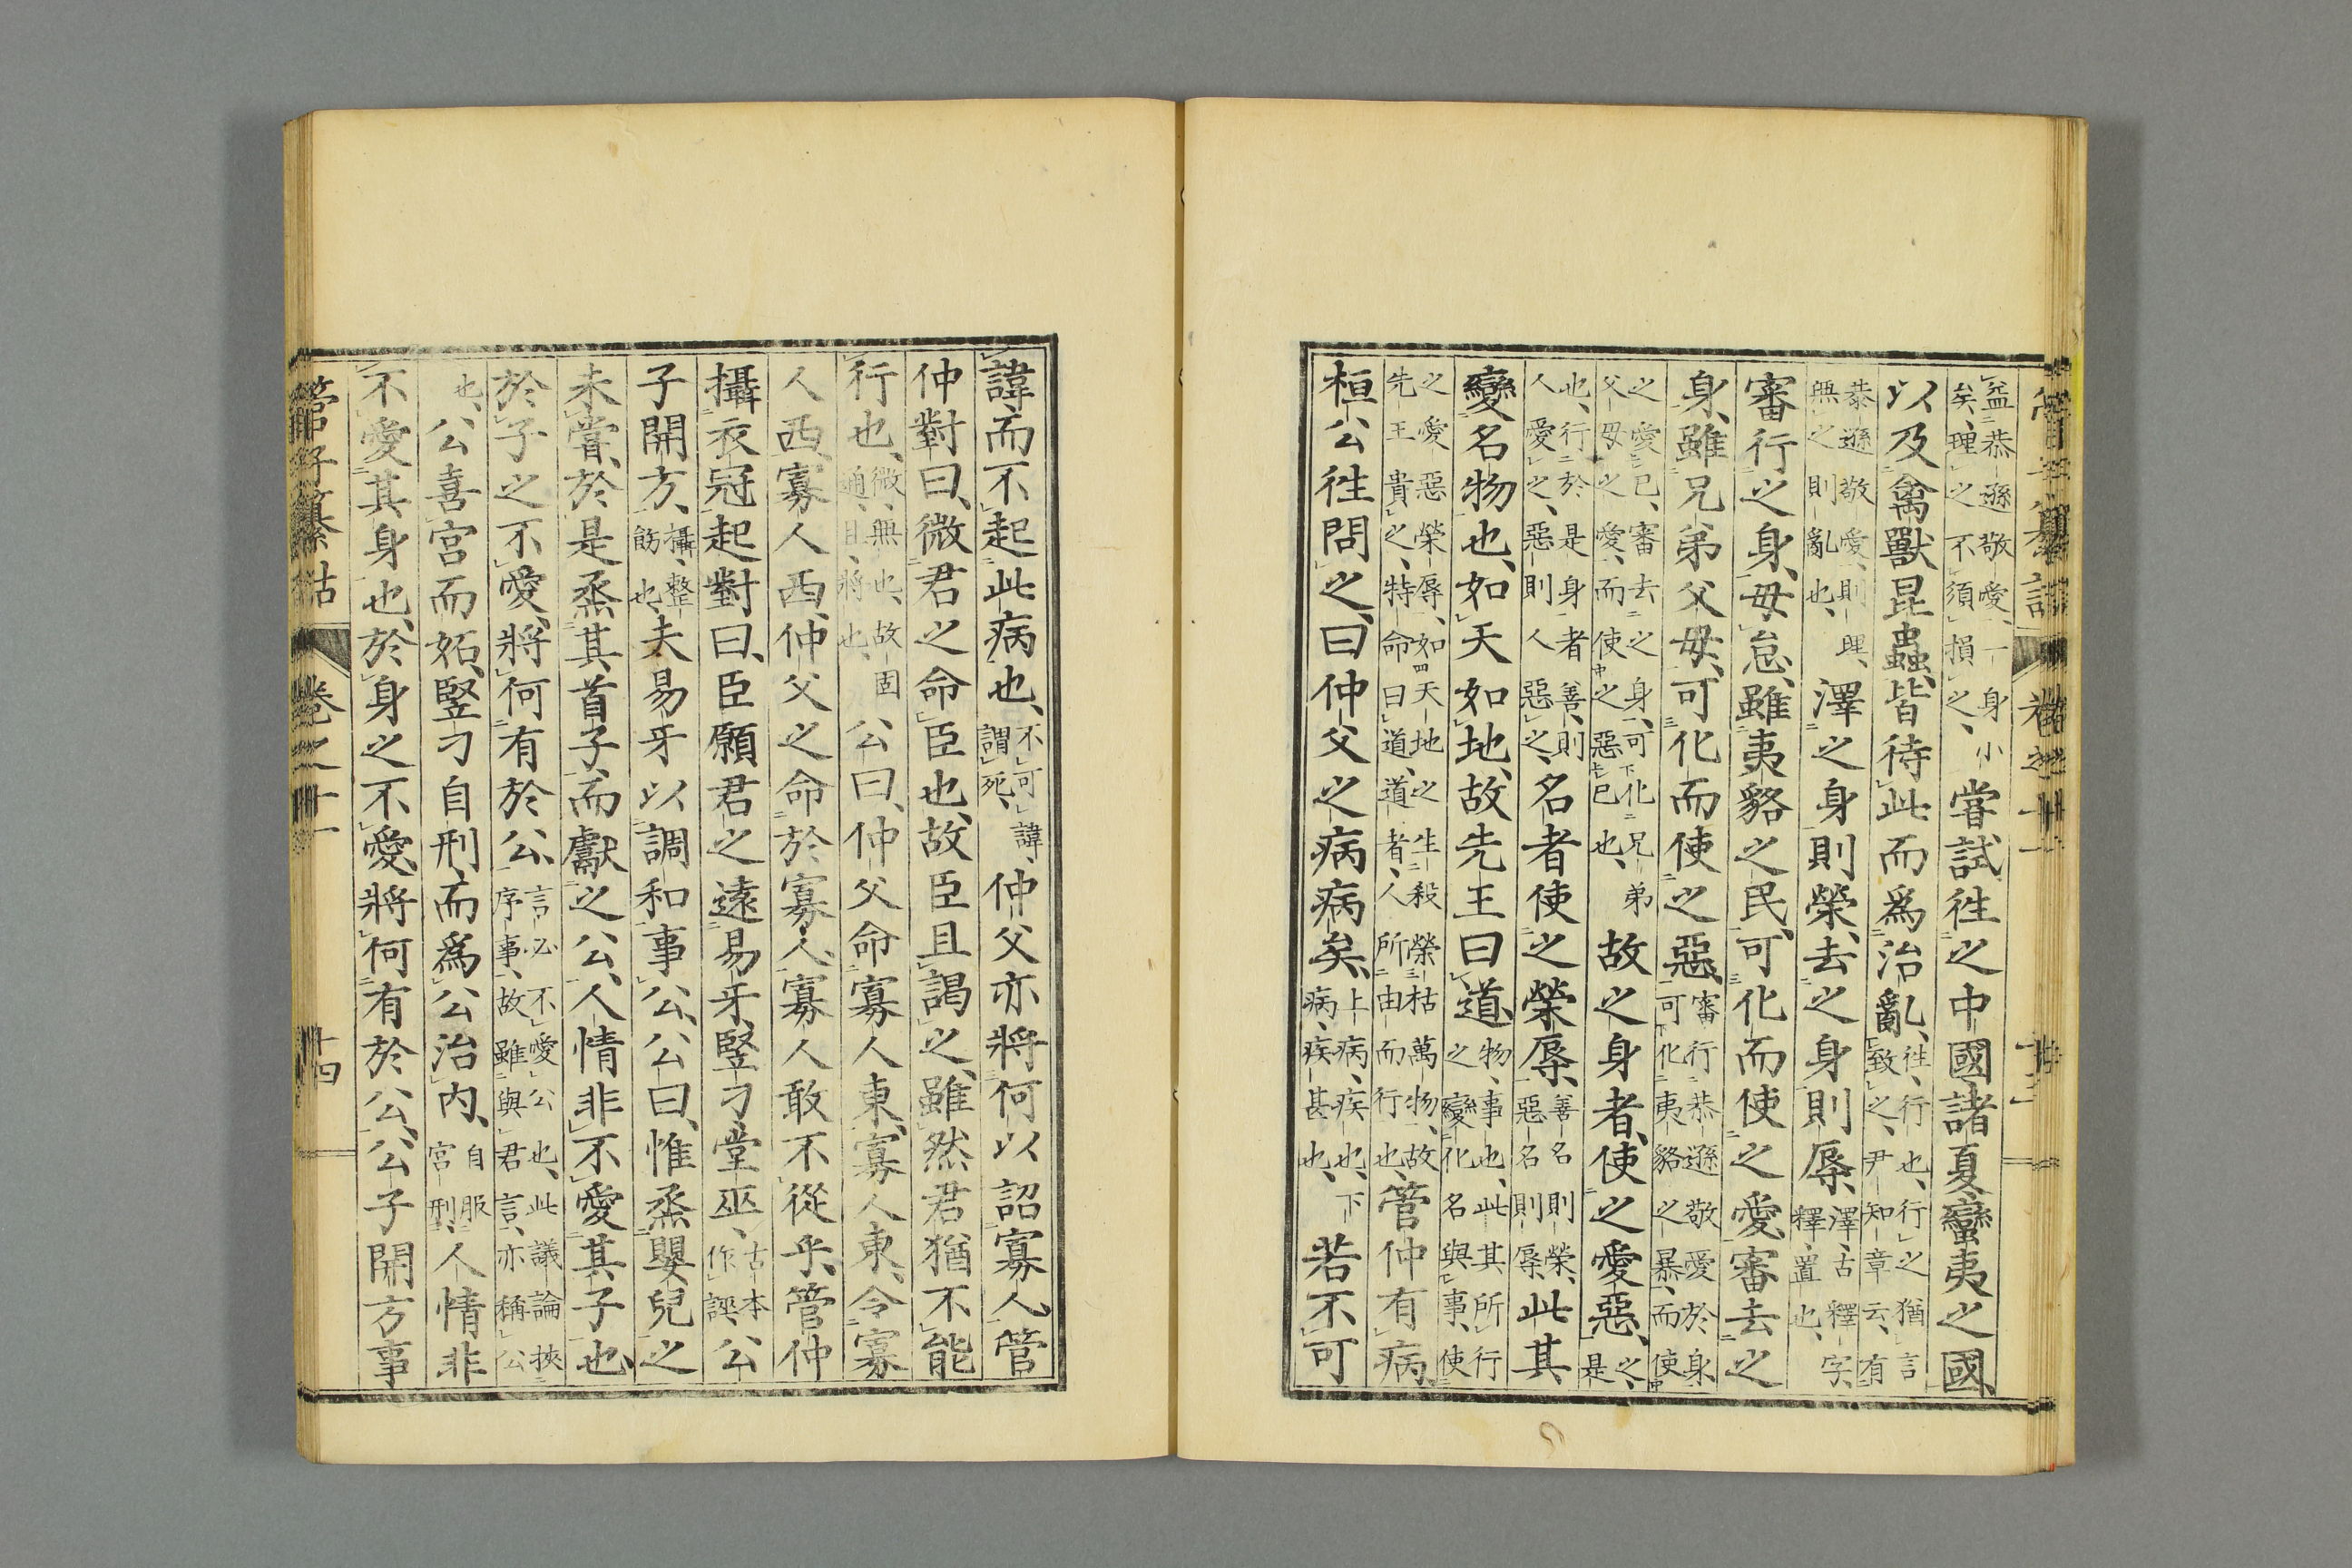 管子纂詁 卷之十一
益恭遜敬愛、一身小矣、理之不須損之、嘗試往之中國諸夏蠻夷之國、
以及禽獸昆蟲、皆待此而爲治亂、往、行也、行之猶言致之、尹知章云、有
恭遜敬愛、則興、無之則亂也、澤之身則榮、去之身則辱、澤、古釋字、釋、置也、
審行之身、毋怠、雖夷貉之民、可化而使之愛、審去之
身、雖兄弟父母、可化而使之惡、審行恭遜敬愛於身、可化夷貉之暴、而使
之愛已、審去之身、可化兄弟父母之愛、而使之惡已也、故之身者、使之愛惡、之、是
也、行於是身者善、則人愛之、惡則人惡之、名者使之榮辱、善名則榮、惡名則辱、此其
變名物也、如天如地、故先王曰道、物、事也、此其所行變化名與事、使
之愛惡榮辱、如天地之生殺榮枯萬物、故先王貴之、特命曰道、道者、人所由而行也、管仲有病、
桓公往問之、曰仲父之病病矣、上病、疾也、下病、疾甚也、若不可
諱、而不起此病也、不可諱、謂死、仲父亦將何以詔寡人、管
仲對曰、微君之命臣也、故臣且謁之、雖然君猶不能
行也、微、無也、故、固通、且、將也、公曰、仲父命寡人東、寡人東、令寡
人西、寡人西、仲父之命於寡人、寡人敢不從乎、管仲
攝衣冠起對曰、臣願君之遠易牙、豎刁、堂巫、古本作誣、公
子開方、攝、整飭也、夫易牙以調和事公、公曰、惟烝嬰兒之
未嘗、於是烝其首子、而獻之公、人情非不愛其子也、
於子之不愛、將何有於公、言必不愛公也、此議論挾序事、故雖與君言、亦稱公
也、公喜宮而妬、豎刁自刑、而爲公治内、自服宮刑、人情非
不愛其身也、於身之不愛、將何有於公、公子開方事
管子纂詁 卷之十一 十四